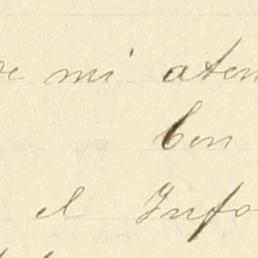 re mi aten
ben
el Info